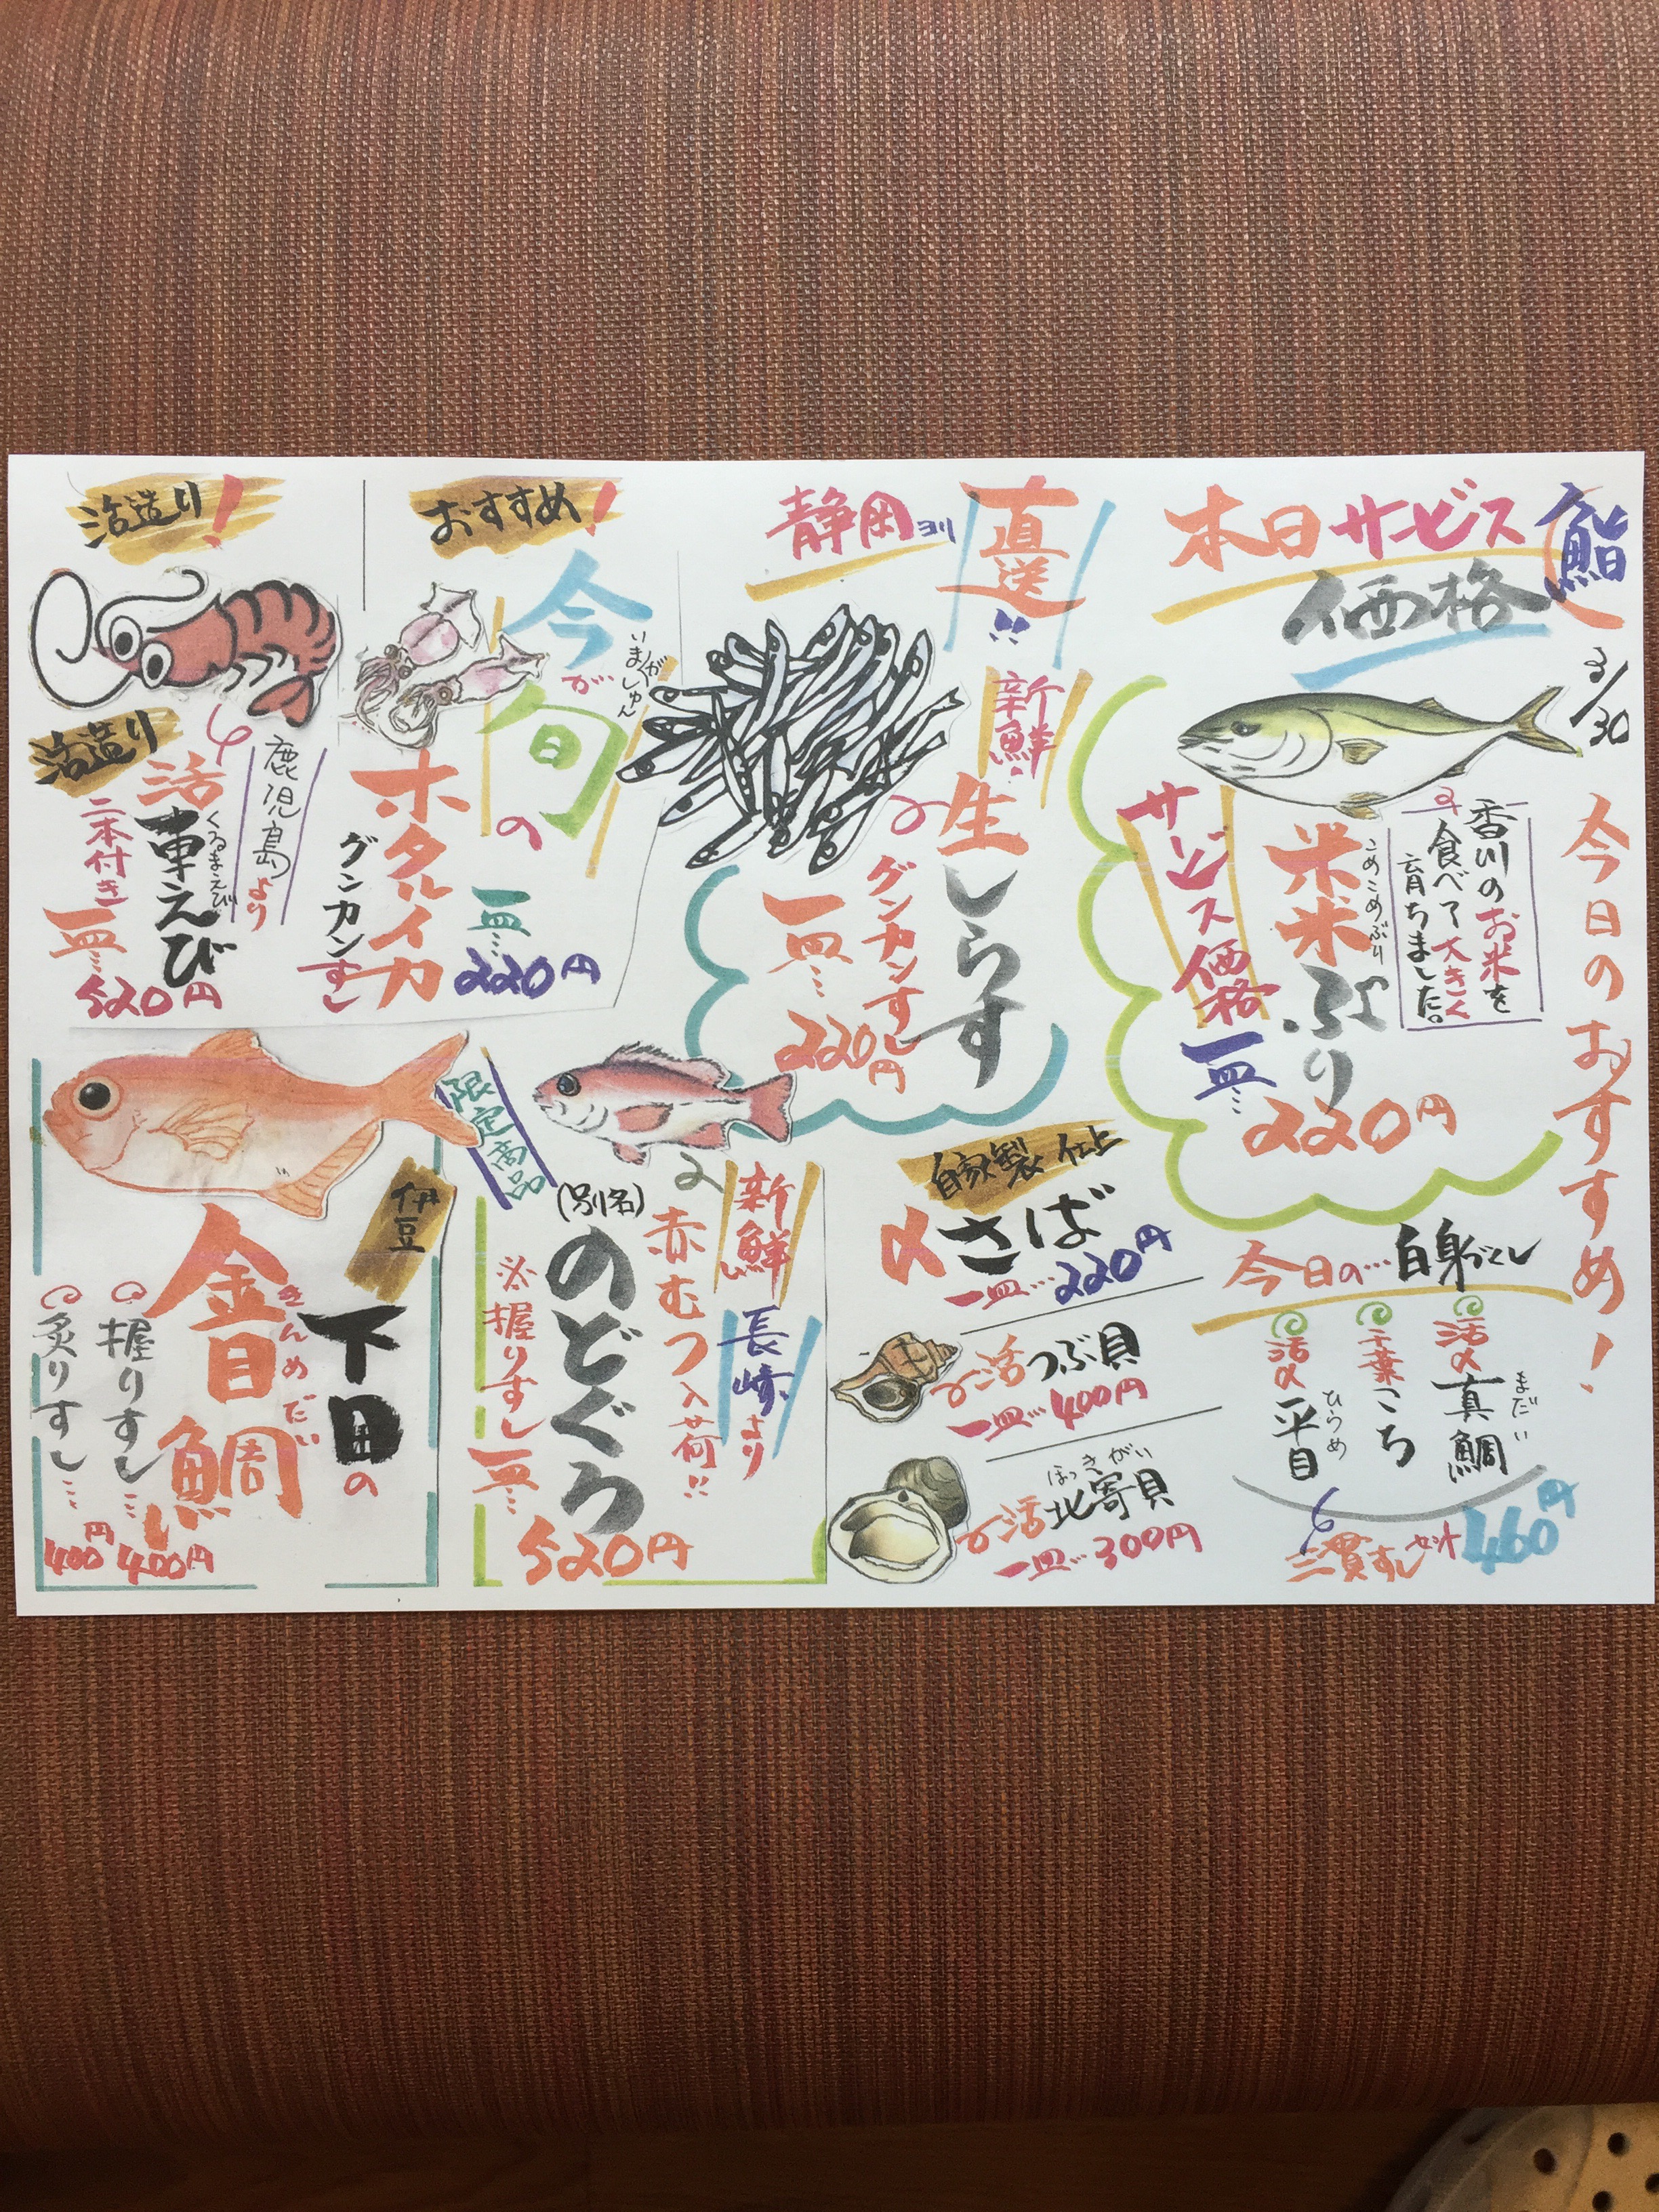 鮨
本日サービス
価格
3/30
今日のおすすめ!
香川のお米を
食べて大きく
育ちました。
米米ぶり
こめこめぶり
サービス価格
一皿…
220円
直送!!
静岡ヨリ
新鮮!
生しらす
グンカンすし
一皿…
220円
おすすめ!
今が旬の
いまがしゅん
ホタルイカ
グンカンすし
一皿…
220円
活造り!
鹿児島より
活車えび
くるまえび
活造り
二本付き
一皿…
520円
今日の…白身づくし
活〆真鯛
まだい
千葉こち
活〆平目
ひらめ
三貫すしセット460円
自家製 仕上
〆さば
一皿…220円
活つぶ貝
一皿…400円
ほっきがい
活北寄貝
一皿…300円
限定商品
新鮮!
長崎より
赤むつ入荷!!
(別名)
のどぐろ
※握りすし
一皿…
520円
伊豆
下田の
金目鯛
きんめだい
握りすし…
400円
炙りすし…
400円